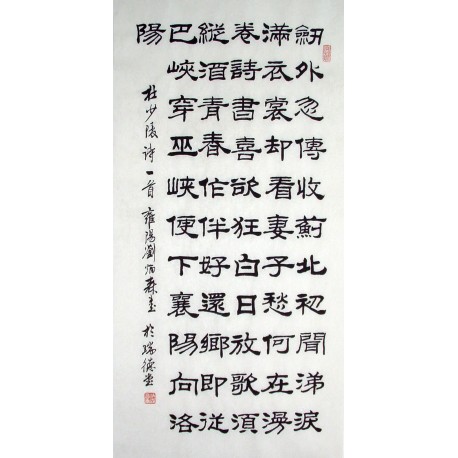 劒外忽傳收薊北初聞涕淚
滿衣裳却看妻子愁何在漫
卷詩書喜欲狂白日放歌須
縱酒青春作伴好還鄉即從
巴峽穿巫峽便下襄陽向洛
陽
杜少陵诗一首 雍陽劉炳森書 於瑞德堂